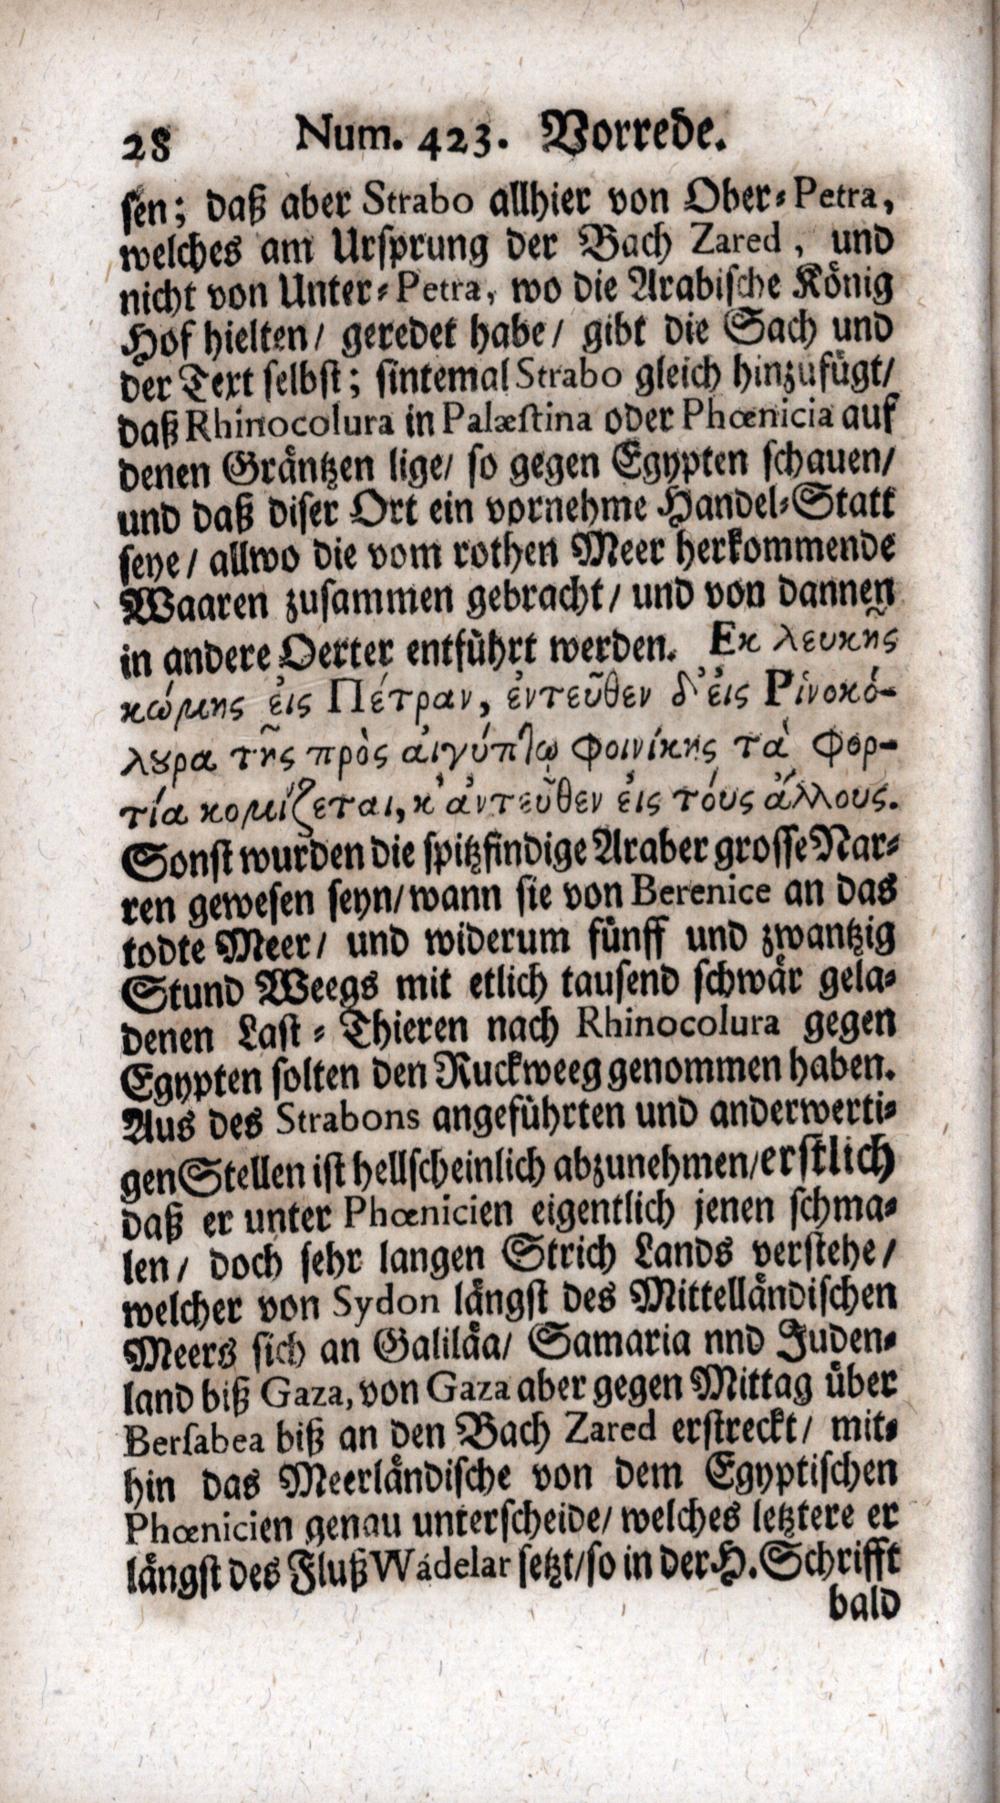 28 Num. 423. Vorrede.
sen; daß aber Strabo allhier von Ober-Petra,
welches am Ursprung der Bach Zared, und
nicht von Unter-Petra, wo die Arabische König
Hof hielten/ geredet habe/ gibt die Sach und
der Text selbst; sintemal Strabo gleich hinzufügt/
daß Rhinocolura in Palæstina oder Phœnicia auf
denen Gräntzen lige/ so gegen Egypten schauen/
und daß diser Ort ein vornehme Handel-Statt
seye/ allwo die vom rothen Meer herkommende
Waaren zusammen gebracht/ und von dannen
in andere Oerter entführt werden. Εκ λευκῆς
κώμης ἐις Πέτραν, ἐντεῦθεν δ'ἐις Ρίνοκό-
λȣρα τῆς πρὸς ἀιγύπτῳ Φοινίκης τὰ Φορ-
τία κομίζεται, κ'ἀντεῦθεν ἐις τόυς ἄλλους.
Sonst wurden die spitzfindige Araber grosse Nar-
ren gewesen seyn/ wann sie von Berenice an das
todte Meer/ und widerum fünff und zwantzig
Stund Weegs mit etlich tausend schwär gela-
denen Last-Thieren nach Rhinocolura gegen
Egypten solten den Ruckweeg genommen haben.
Aus des Strabons angeführten und anderwerti-
gen Stellen ist hellscheinlich abzunehmen/ erstlich
daß er unter Phœnicien eigentlich jenen schma-
len/ doch sehr langen Strich Lands verstehe/
welcher von Sydon längst des Mittelländischen
Meers sich an Galiläa/ Samaria nnd Juden-
land biß Gaza, von Gaza aber gegen Mittag über
Bersabea biß an den Bach Zared erstreckt/ mit-
hin das Meerländische von dem Egyptischen
Phœnicien genau unterscheide/ welches letztere er
längst des Fluß Wádelar setzt/ so in der H. Schrifft
bald